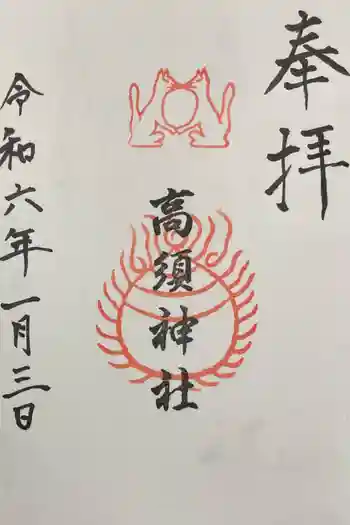 奉拝
高須神社
令和六年一月三日